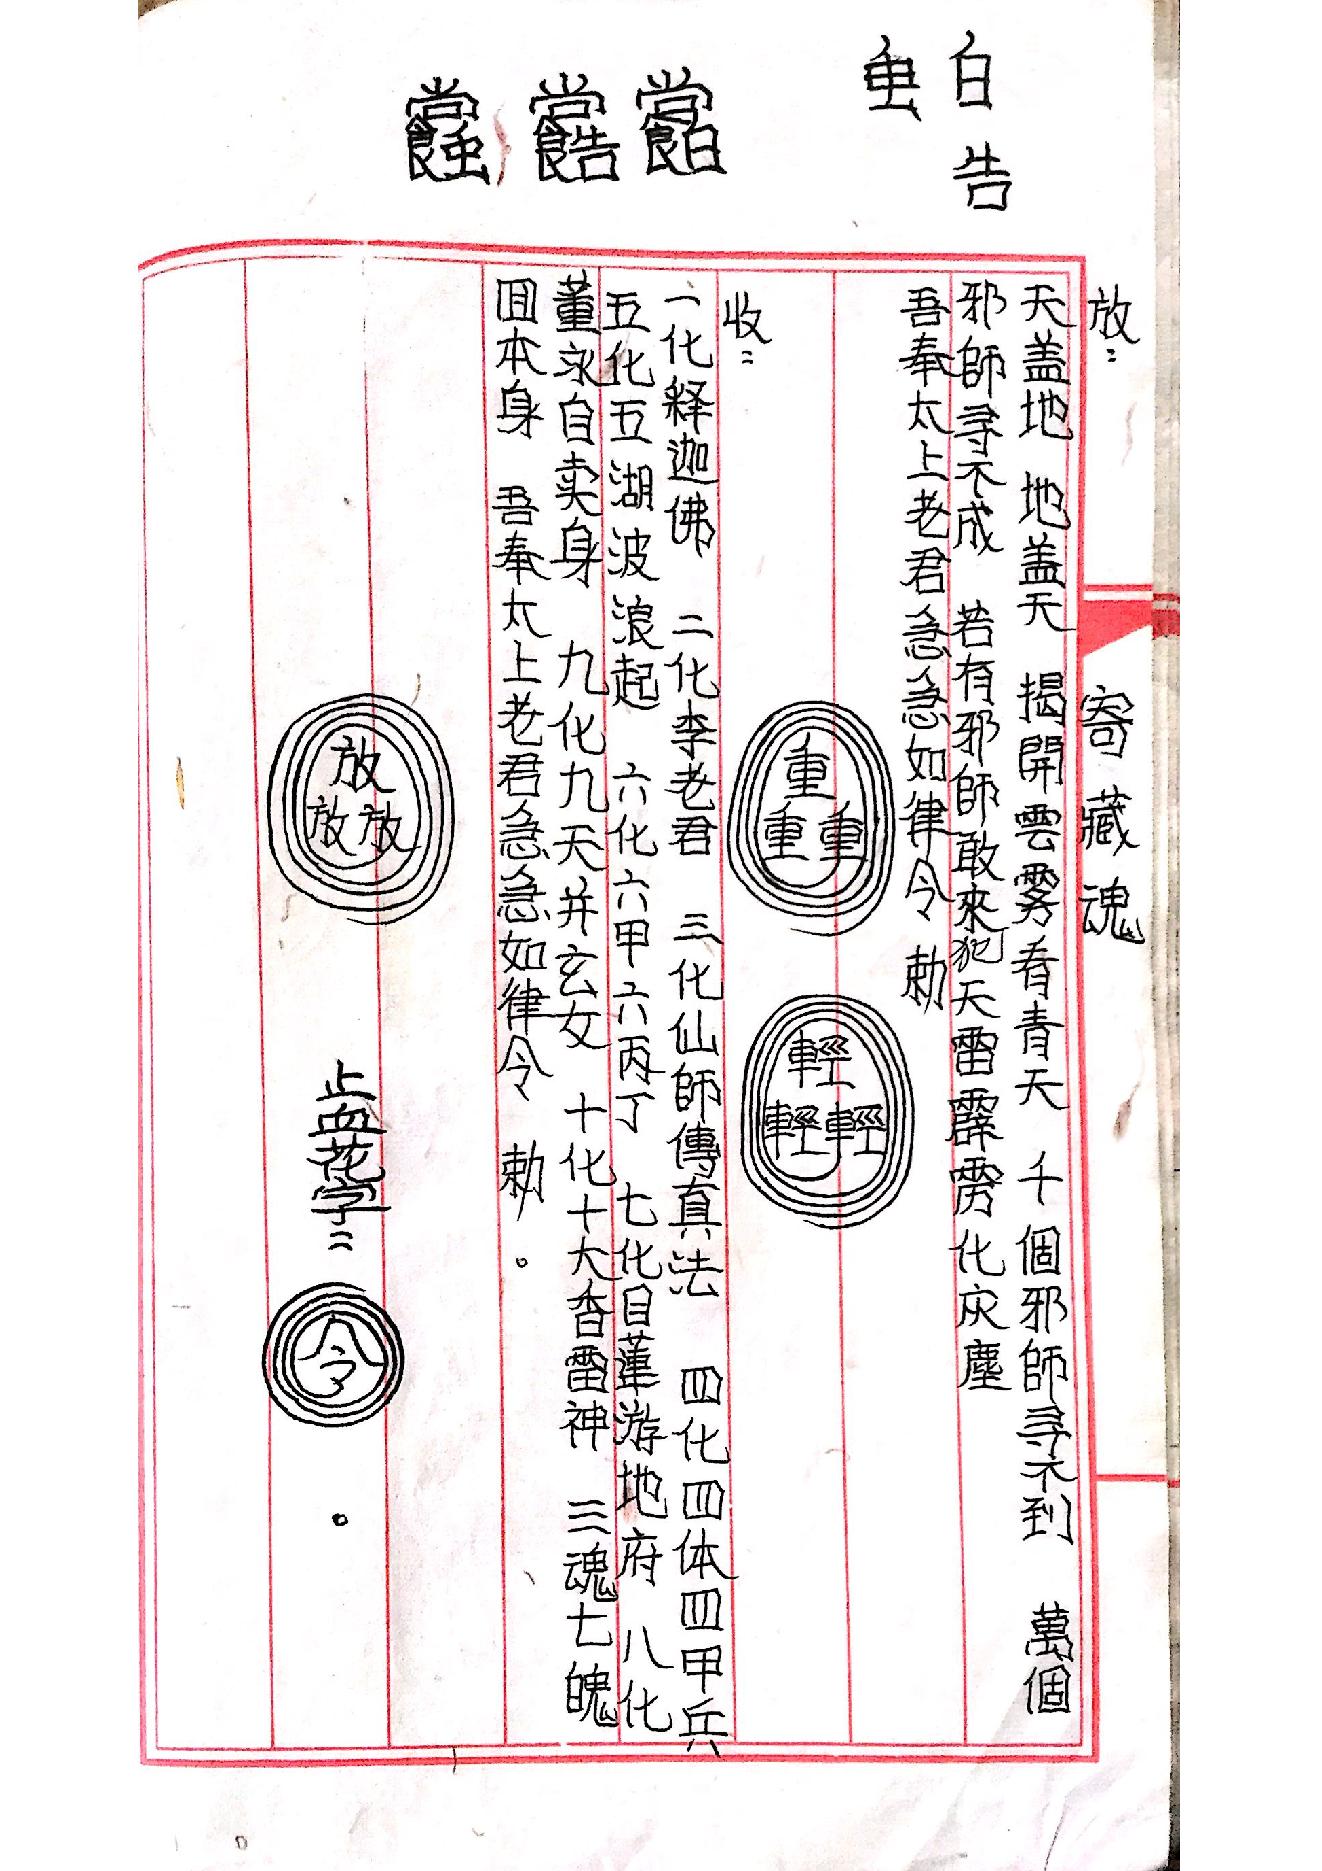 白告
寄藏魂
放：
天盖地 地盖天 揭開雲雾看青天 千個邪師寻不到 萬個
邪師寻不成 若有邪師敢來犯天雷霹雳化灰塵
吾奉太上老君急急如律令 勅
重
重重
輕
輕輕
收：
一化释迦佛 二化李老君 三化仙師傳真法 四化四体四甲兵
五化五湖波浪起 六化六甲六丙丁 七化目莲游地府 八化
董永自卖身 九化九天并玄女 十化十大香雷神 三魂七魄
囬本身 吾奉太上老君急急如律令 勅。
放
放放
止血花字：
令。